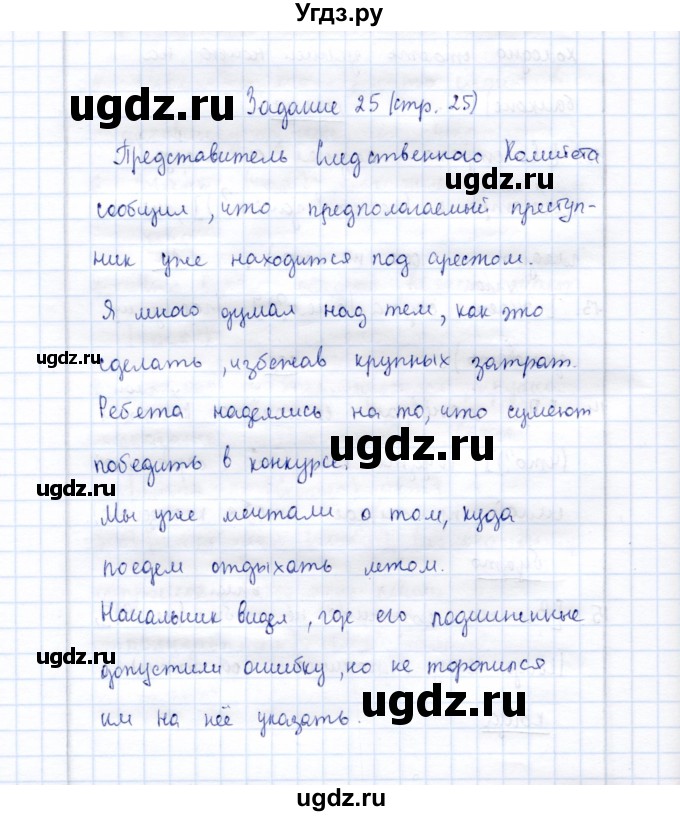 Угдз.ру
ugdz.ru Задание 25 (стр. 25)
Представитель Следственного Комитета
ugdz.ru
сообщил, что предполагаемый преступ-
ник уже находится под арестом.
Я много думал над тем, как это
ugdz.ru сделать, избежав крупных затрат.
Ребята надеялись на то, что сумеют
ugdz.ru
победить в конкурсе.
ugdz.ru
Мы уже мечтали о том, куда
поедем отдыхать летом.
Начальник видел, где его подчиненные
ugdz.ru допустили ошибку, но не торопился
им на неё указать. ugdz.ru
ugdz.ru